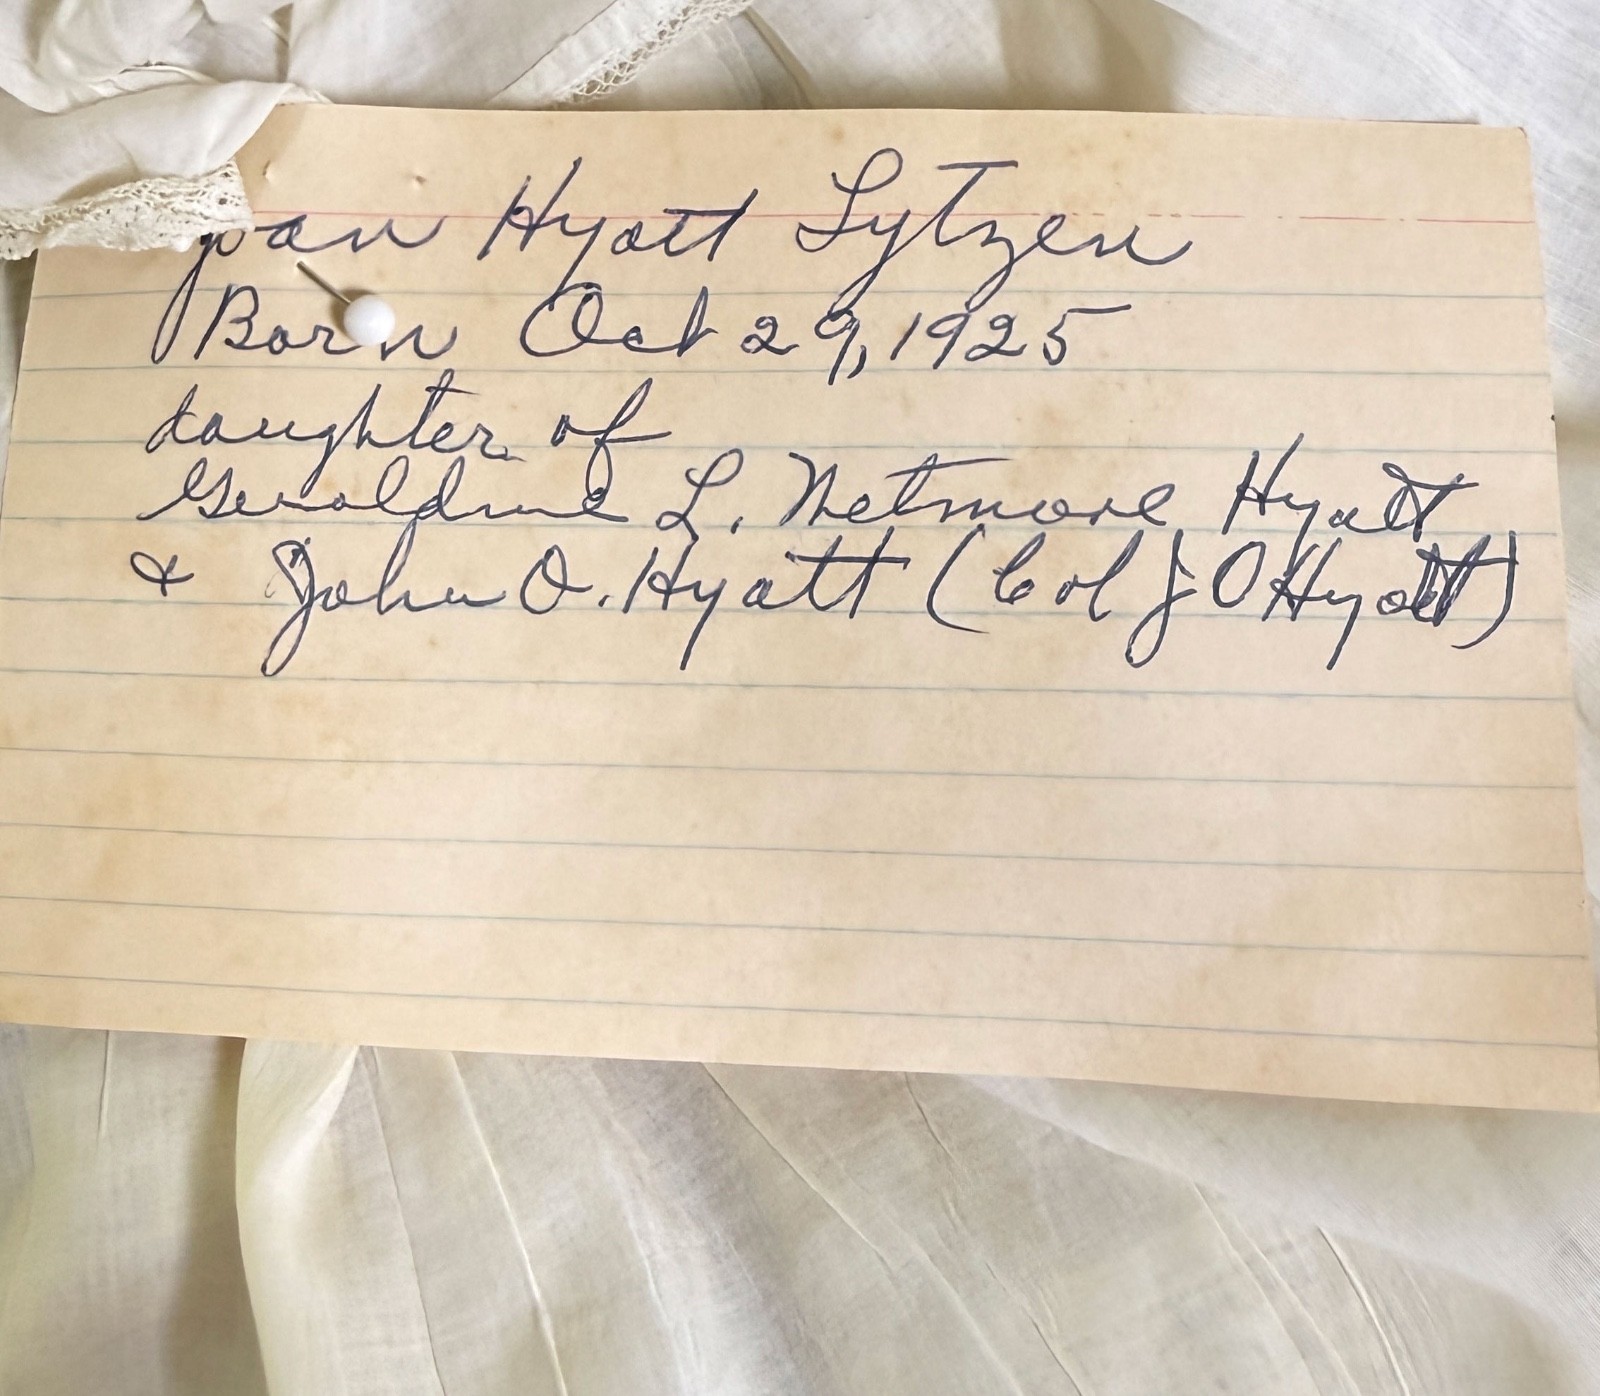 Joan Hyatt Lytzen
Born Oct 29, 1925
daughter of
Geraldine L. Wetmore Hyatt
& John O. Hyatt (Col J O Hyatt)